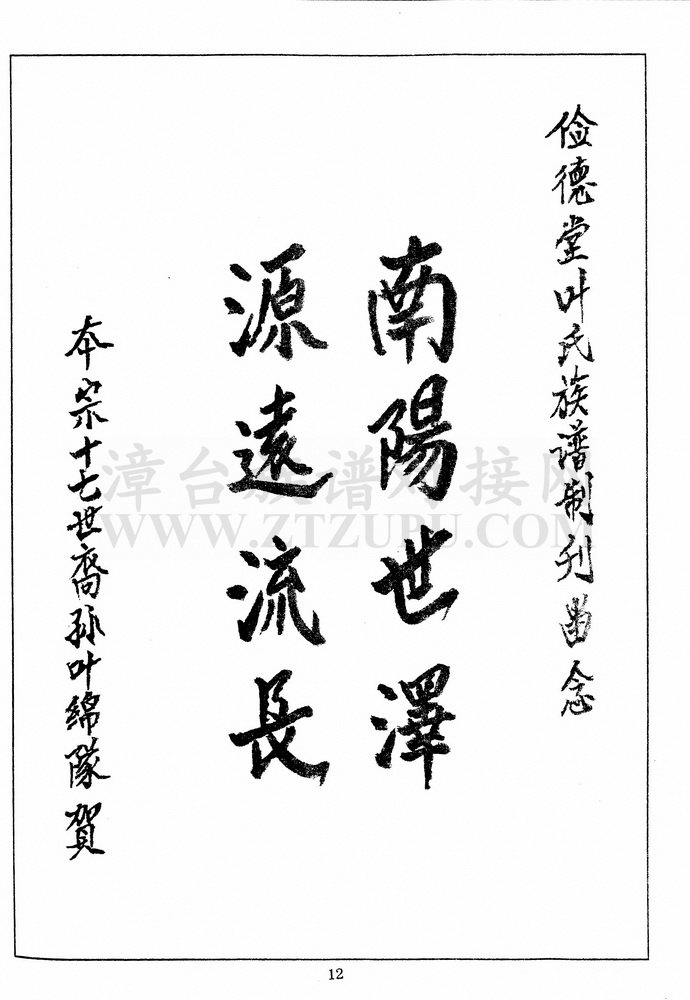 俭德堂叶氏族谱制刊留念
南陽世澤
源遠流長
本宗十七世裔孙叶綿隊賀
漳台族谱对接网
WWW.ZTZUPU.COM
12